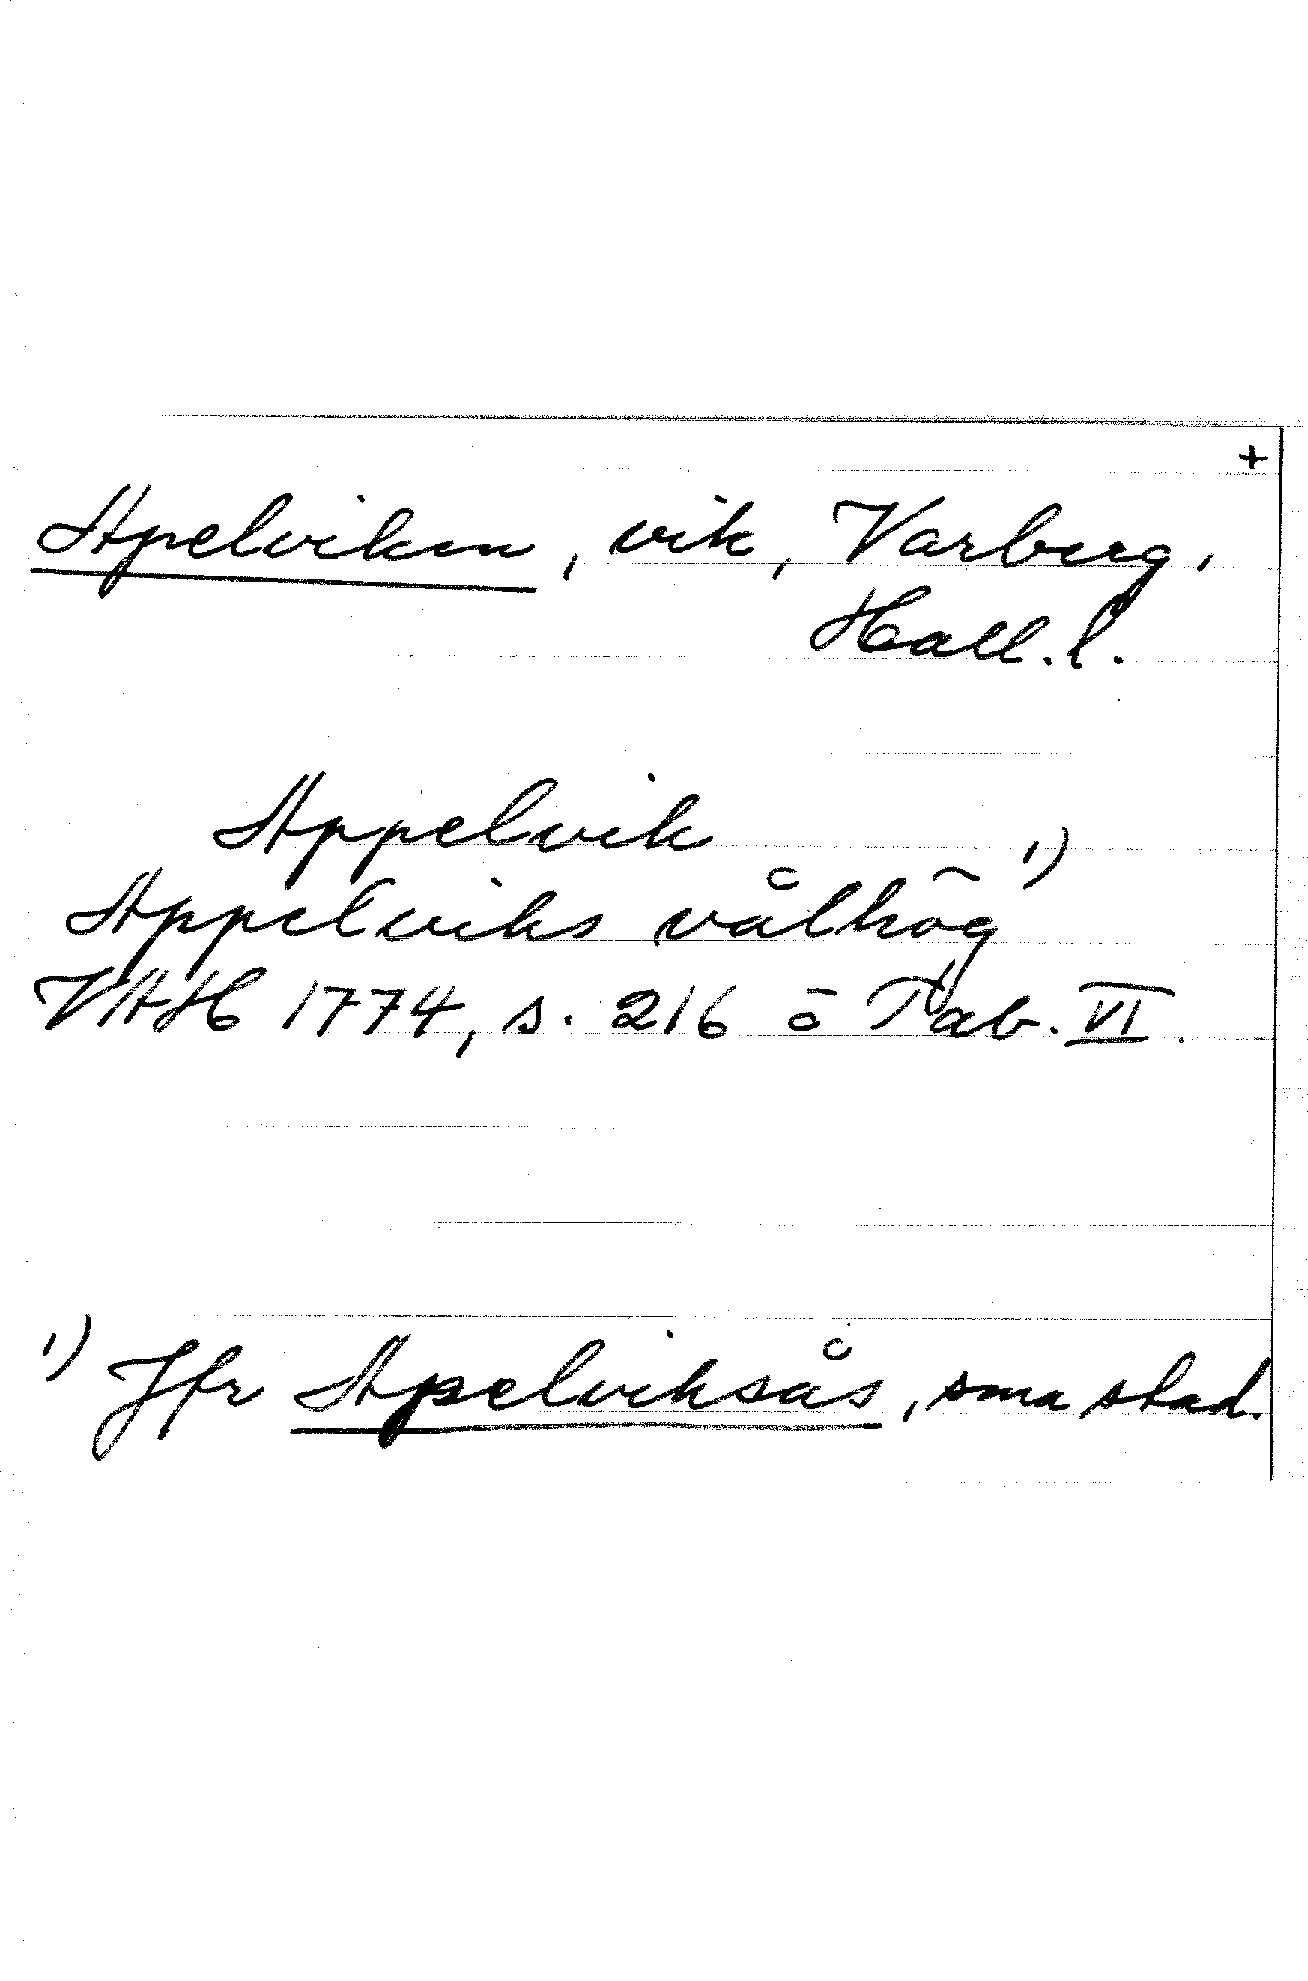 +
Apelviken, vik, Varberg,
Hall. l.
Appelvik
Appelviks vålhög 1)
VAH 1774, s. 216 o Tab. VI.
1) Jfr Apelviksås, sma stad.